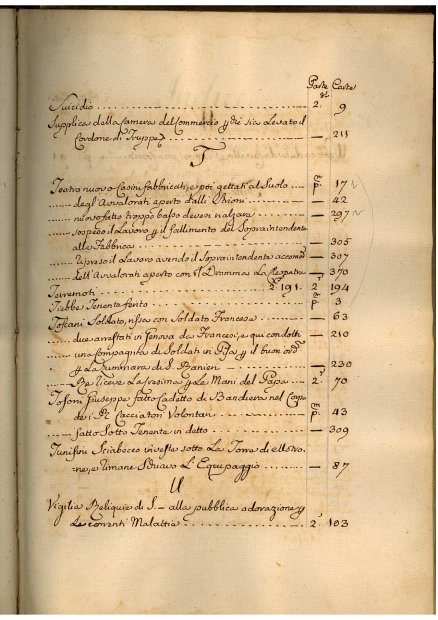 Parte Carte
Suicidio 2. 9
Supplica della Camera del Commercio p che sia Levato il
Cordone di Truppe — 211
T
Teatro nuovo Casini fabbricati, e poi gettati al Suolo — p. 17
degl'Avvalorati aperto dalli — 42
nuovo fatto troppo basso deve si rialzare — 297
sospeso il Lavoro p il fallimento del Sopraintendente
alla Fabbrica — 305
ripreso il Lavoro avendo il Sopraintendente — 307
dell'Avvalorati aperto con il Dramma La Cleopatra — 370
Terremoti 2. 191. 2. 194
Tebbe Tenente ferito p. 3
Toscani Soldato, rissa con Soldato Francese — 63
due arrestati in Genova da Francesi, e qui condotti — 210
una compagnia di Soldati in Pisa p il buon ord.e
p La Luminara di S. Ranieri — 230
Re riceve La Cresima p Le Mani del Papa — 2. 70
Tosoni Giuseppe fatto Cadetto di Bandiera nel Corpo
de i Rl. Cacciatori Volontari p. 43
fatto Sotto Tenente in detto — 309
Tunisini Sciabecco investe sotto La Torre di
ne, e rimane Schiavo L'Equipaggio — 87
U
Vigilia Reliquie di S. — alla pubblica adorazione p
Le correnti Malattie 2. 103